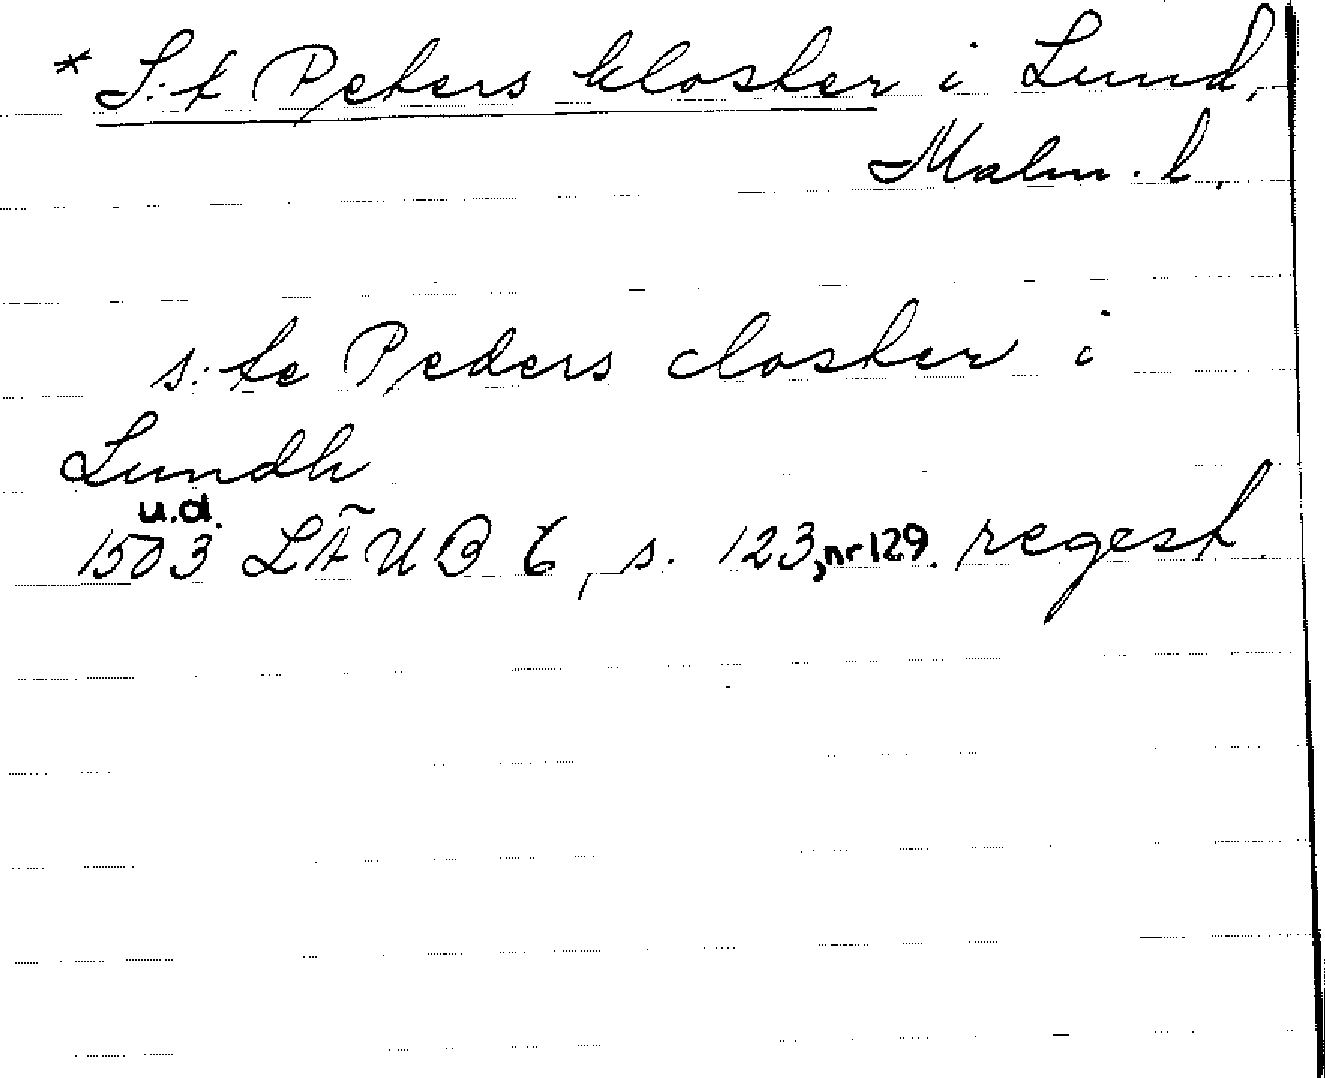 * S:t Peters kloster i Lund,
Malm. l.
s:te Peders closter i
Lundh
u.d.
1503 LÄUB 6, s. 123, nr 129. regest